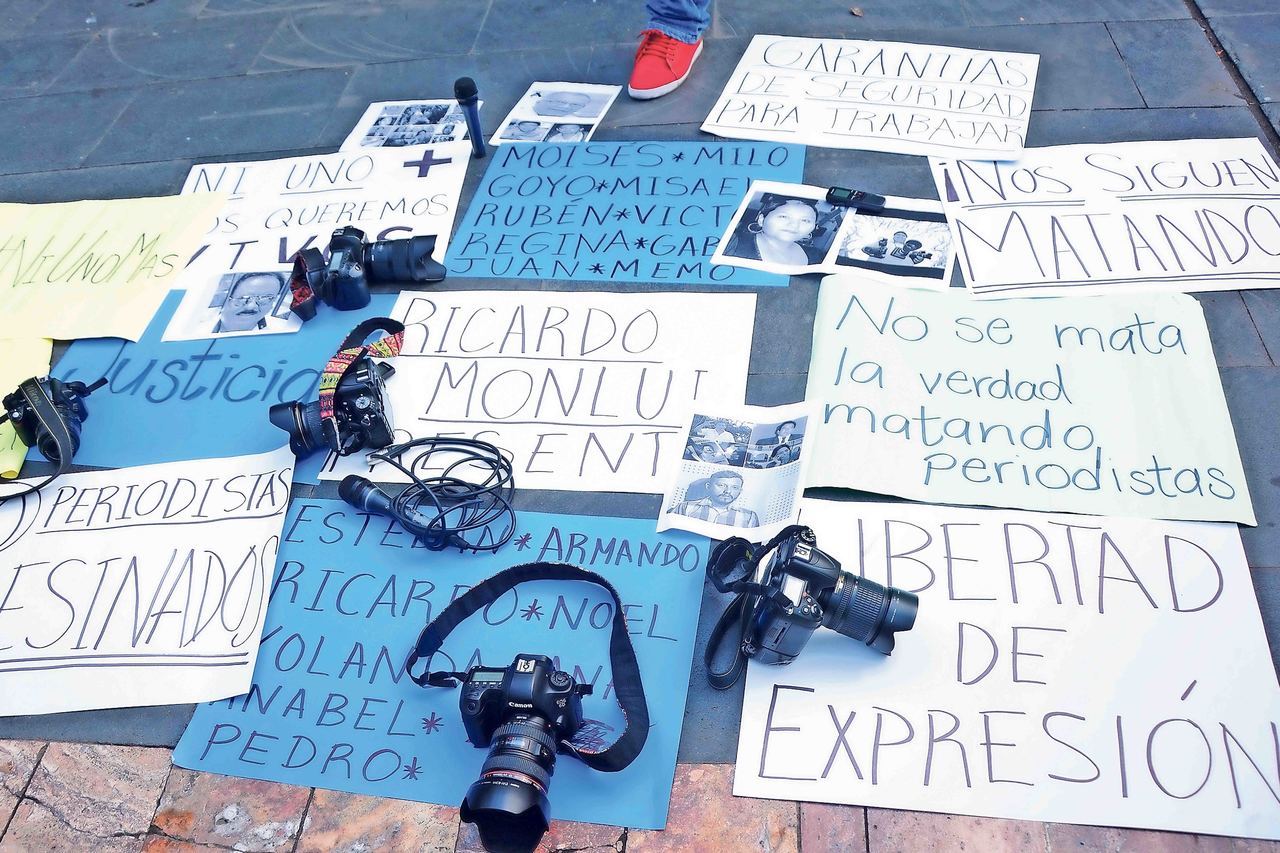 GARANTIAS
DE SEGURIDAD
PARA TRABAJAR
NI UNO +
OS QUEREMOS
MOISES * MILO
GOYO * MISAEL
RUBÉN * VICT
REGINA * GAB
JUAN * MEMO
¡NOS SIGUEN
MATANDO
#NIUNOMAS
Justicia
RICARDO
MONLUI
No se mata
la verdad
matando
periodistas
PERIODISTAS
ESINADOS
ARMANDO
RICARDO * NOEL
YOLANDA
ANABEL *
PEDRO *
Canon
LIBERTAD
DE
EXPRESIÓN